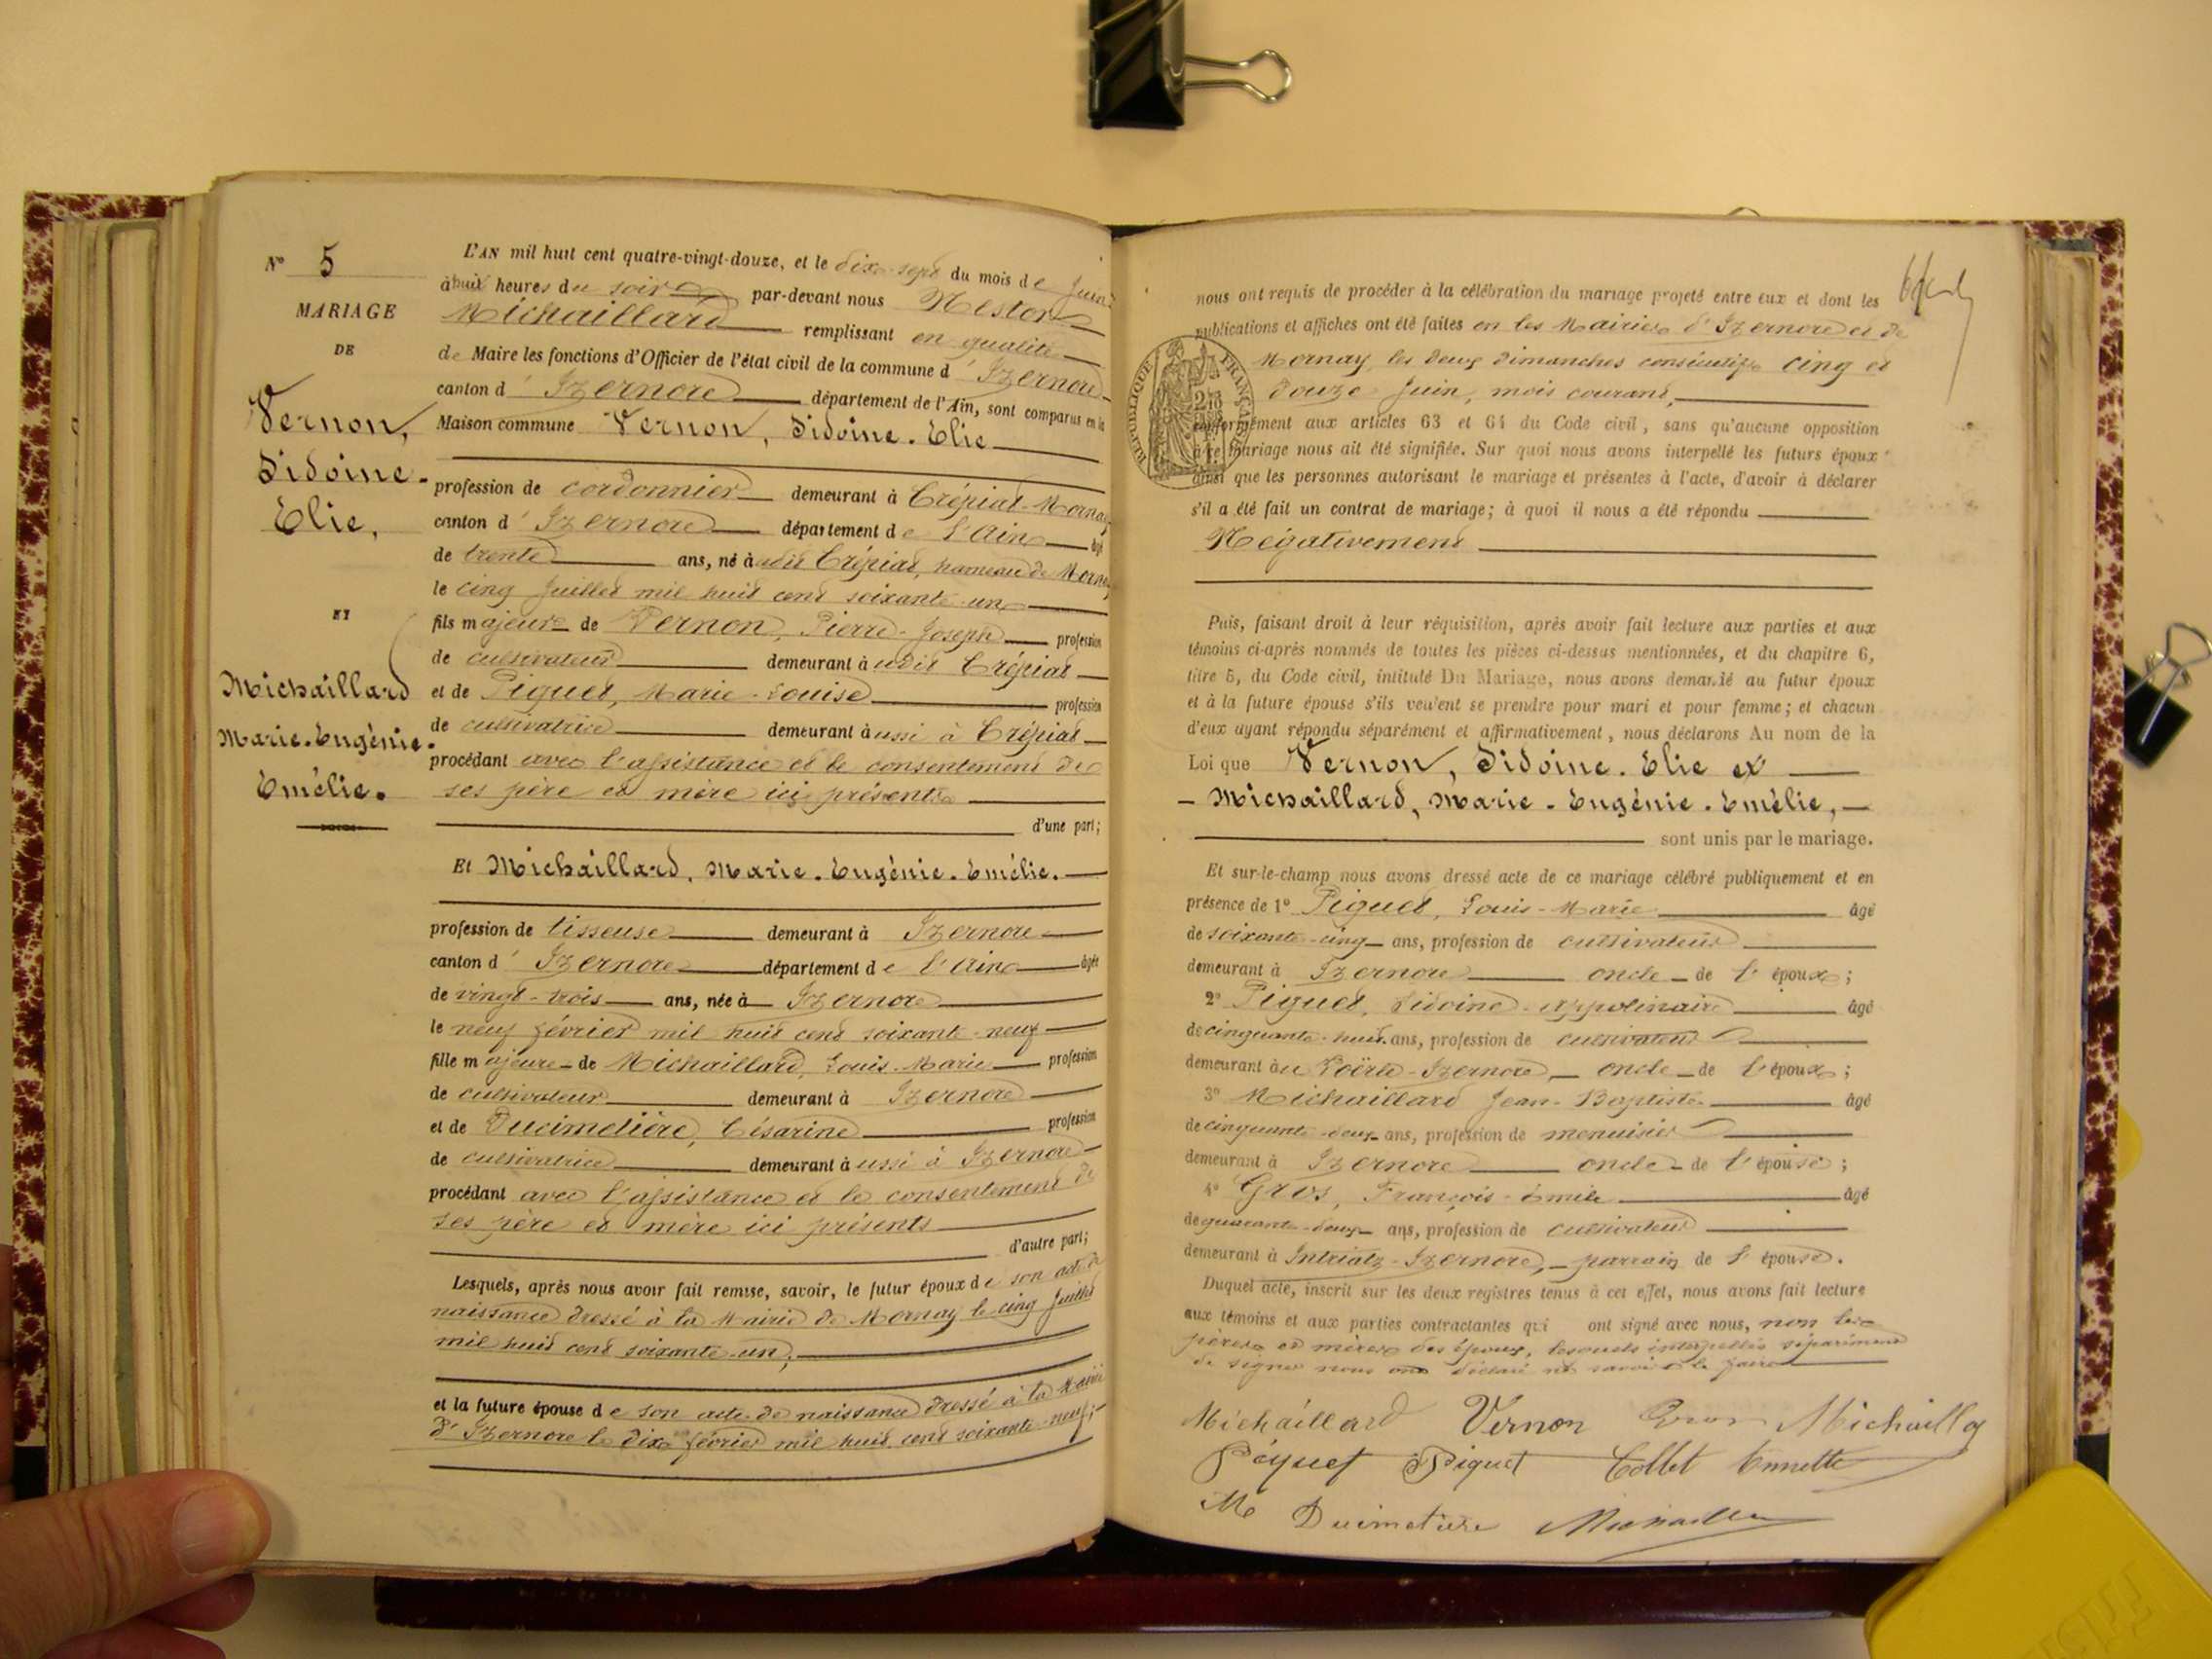 N° 5
MARIAGE
DE
Vernon,
Sidoine-
Elie,
ET
Michaillard
Marie-Eugénie-
Emélie.
L'AN mil huit cent quatre-vingt-douze, et le dix-sept du mois de Juin
à huit heures du soir par-devant nous Nestor
Michaillard remplissant en qualité
de Maire les fonctions d'Officier de l'état civil de la commune d'Izernore
canton d'Izernore département de l'Ain, sont comparus en la
Maison commune Vernon, Sidoine-Elie
profession de cordonnier demeurant à Crépiat-Mornay
canton d'Izernore département de l'Ain âgé
de trente ans, né à udit Crépiat, hameau de Mornay
le cinq Juillet mil huit cent soixante-un
fils majeur de Vernon, Pierre-Joseph profession
de cultivateur demeurant à udit Crépiat
et de Piquet, Marie-Louise profession
de cultivatrice demeurant à ussi à Crépiat
procédant avec l'assistance et le consentement de
ses père et mère ici présents
d'une part;
Et Michaillard, Marie-Eugénie-Emélie.
profession de tisseuse demeurant à Izernore
canton d'Izernore département de l'Ain âgée
de vingt-trois ans, née à Izernore
le neuf février mil huit cent soixante-neuf
fille majeure de Michaillard, Louis-Marie profession
de cultivateur demeurant à Izernore
et de Ducimetière, Césarine profession
de cultivatrice demeurant à ussi à Izernore
procédant avec l'assistance et le consentement de
ses père et mère ici présents
d'autre part;
Lesquels, après nous avoir fait remise, savoir, le futur époux de son acte de
naissance dressé à la Mairie de Mornay le cinq Juillet
mil huit cent soixante-un;
et la future épouse de son acte de naissance dressé à la Mairie
d'Izernore le dix février mil huit cent soixante-neuf;
nous ont requis de procéder à la célébration du mariage projeté entre eux et dont les
publications et affiches ont été faites en les Mairies d'Izernore et de
Mornay, les deux dimanches consécutifs cinq et
douze Juin, mois courant,
RÉPUBLIQUE FRANÇAISE
conformément aux articles 63 et 64 du Code civil, sans qu'aucune opposition
à ce mariage nous ait été signifiée. Sur quoi nous avons interpellé les futurs époux
ainsi que les personnes autorisant le mariage et présentes à l'acte, d'avoir à déclarer
s'il a été fait un contrat de mariage; à quoi il nous a été répondu
Négativement
Puis, faisant droit à leur réquisition, après avoir fait lecture aux parties et aux
témoins ci-après nommés de toutes les pièces ci-dessus mentionnées, et du chapitre 6,
titre 5, du Code civil, intitulé Du Mariage, nous avons demandé au futur époux
et à la future épouse s'ils veulent se prendre pour mari et pour femme; et chacun
d'eux ayant répondu séparément et affirmativement, nous déclarons Au nom de la
Loi que Vernon, Sidoine-Elie et
Michaillard, Marie-Eugénie-Emélie,
sont unis par le mariage.
Et sur-le-champ nous avons dressé acte de ce mariage célébré publiquement et en
présence de 1° Piquet, Louis-Marie âgé
de soixante-cinq ans, profession de cultivateur
demeurant à Izernore oncle de l'époux;
2° Piquet, Sidoine-Appolinaire âgé
de cinquante-huit ans, profession de cultivateur
demeurant à u Voërle-Izernore, oncle de l'époux;
3° Michaillard Jean-Baptiste âgé
de cinquante-deux ans, profession de menuisier
demeurant à Izernore oncle de l'épouse;
4° Gros, François-Emile âgé
de quarante-deux ans, profession de cultivateur
demeurant à Intriatz-Izernore, parrain de l'épouse.
Duquel acte, inscrit sur les deux registres tenus à cet effet, nous avons fait lecture
aux témoins et aux parties contractantes qui ont signé avec nous, non les
pères et mères des époux, lesquels interpellés séparément
de signer nous ont déclaré ne savoir le faire
Michaillard Vernon Gros Michailla
Péquet Piquet Collet Annette
Me Ducimetière Michailla